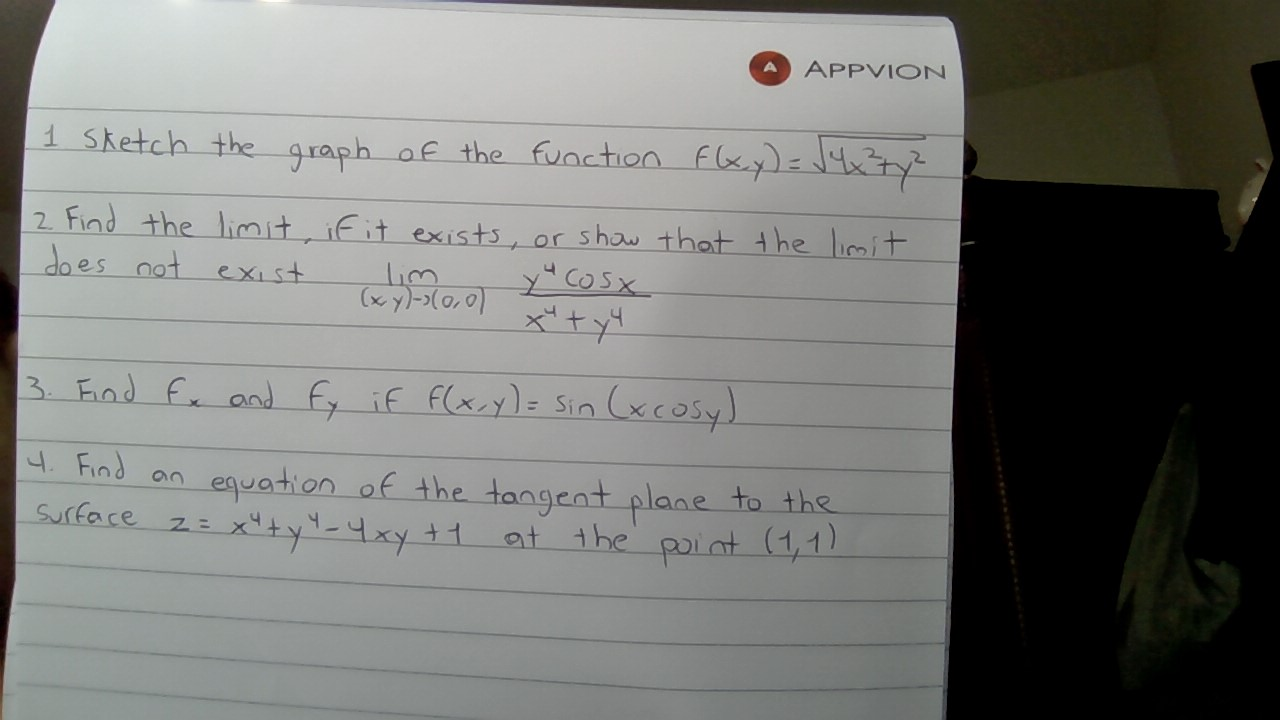 A APPVION
1 Sketch the graph of the function f(x,y)=√4x²+y²
2. Find the limit, if it exists, or show that the limit
does not exist lim (x,y)->(0,0) y⁴cosx / x⁴+y⁴
3. Find fx and fy if f(x,y)= sin(xcosy)
4. Find an equation of the tangent plane to the
surface z= x⁴+y⁴-4xy+1 at the point (1,1)